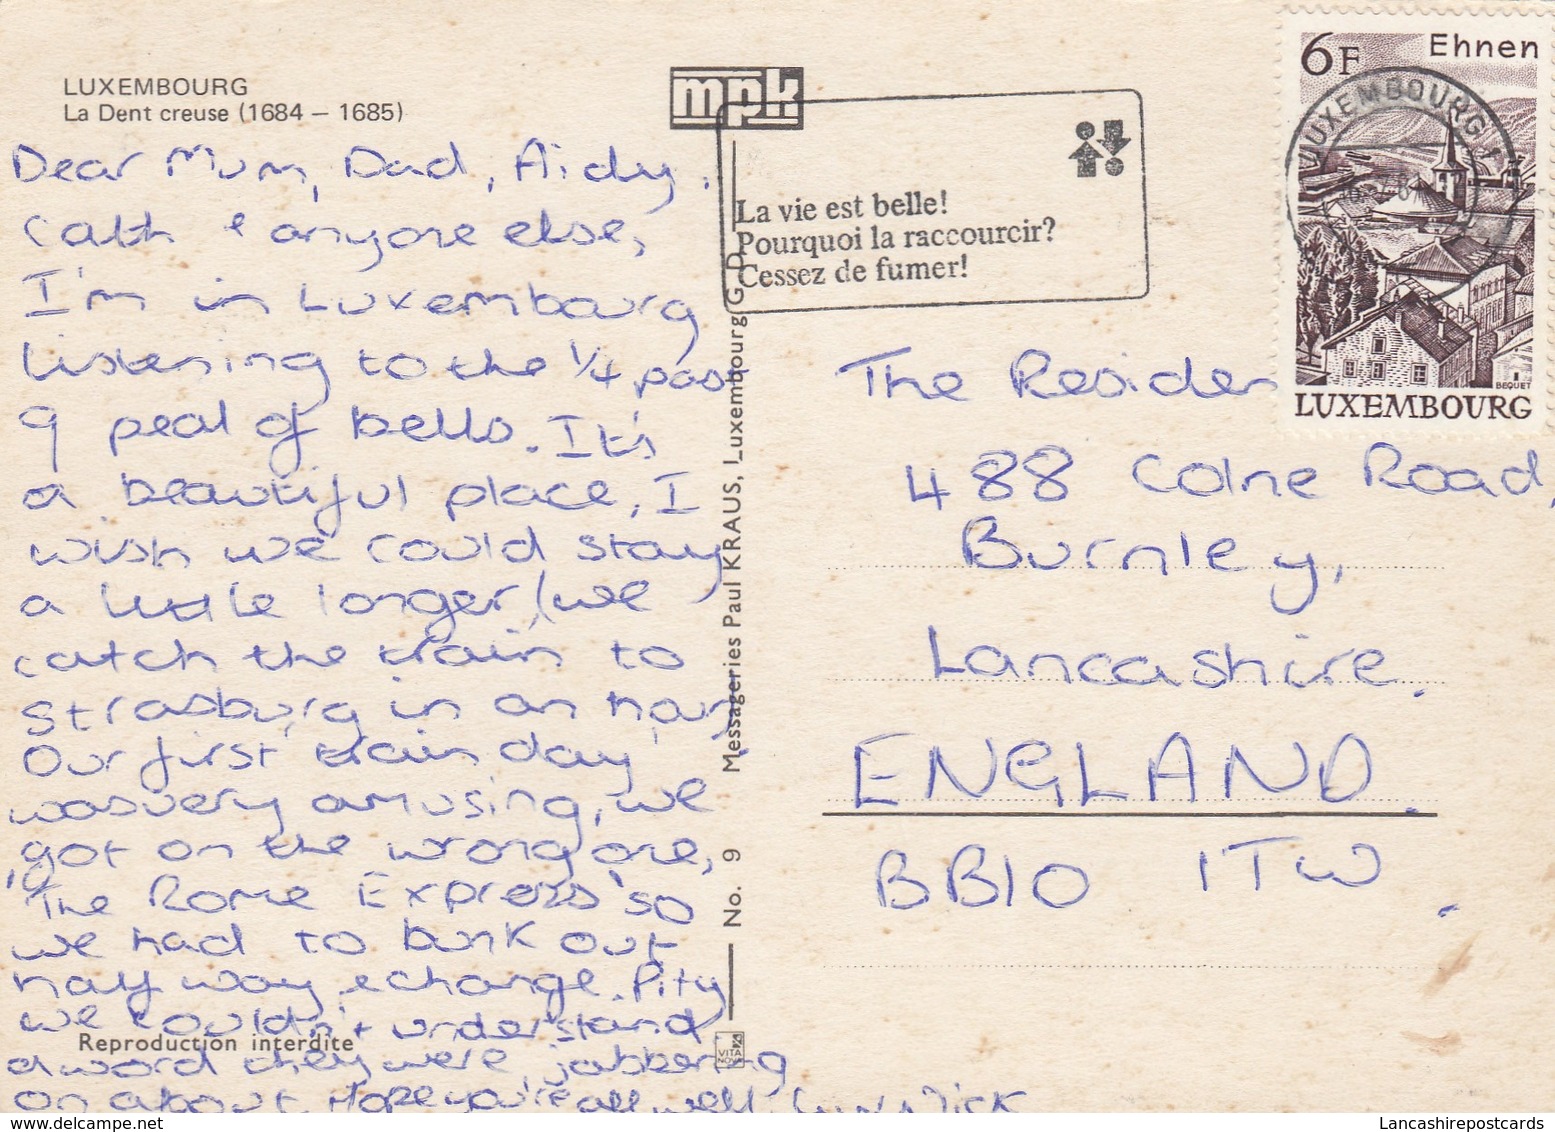 LUXEMBOURG
La Dent creuse (1684 – 1685)
mpk
Dear Mum, Dad, Aidy,
Cath & anyone else,
I'm in Luxembourg
listening to the 1/4 past
9 peal of bells. It's
a beautiful place, I
wish we could stay
a little longer, (we
catch the train to
Strasburg in an hour,
Our first train day
was very amusing, we
got on the wrong one,
'The Rome Express' so
we had to bunk out
half way & change. Pity
we couldn't understand
a word they were jabbering
on about. Hope you're all well. Nick
Reproduction interdite
No. 9 Messageries Paul KRAUS, Luxembourg G. D.
VITA NOVA
La vie est belle!
Pourquoi la raccourcir?
Cessez de fumer!
6F Ehnen
LUXEMBOURG 1
BEQUET
LUXEMBOURG
The Residen
488 Colne Road,
Burnley,
Lancashire.
ENGLAND.
BB10 1TW.
www.delcampe.net
Lancashirepostcards